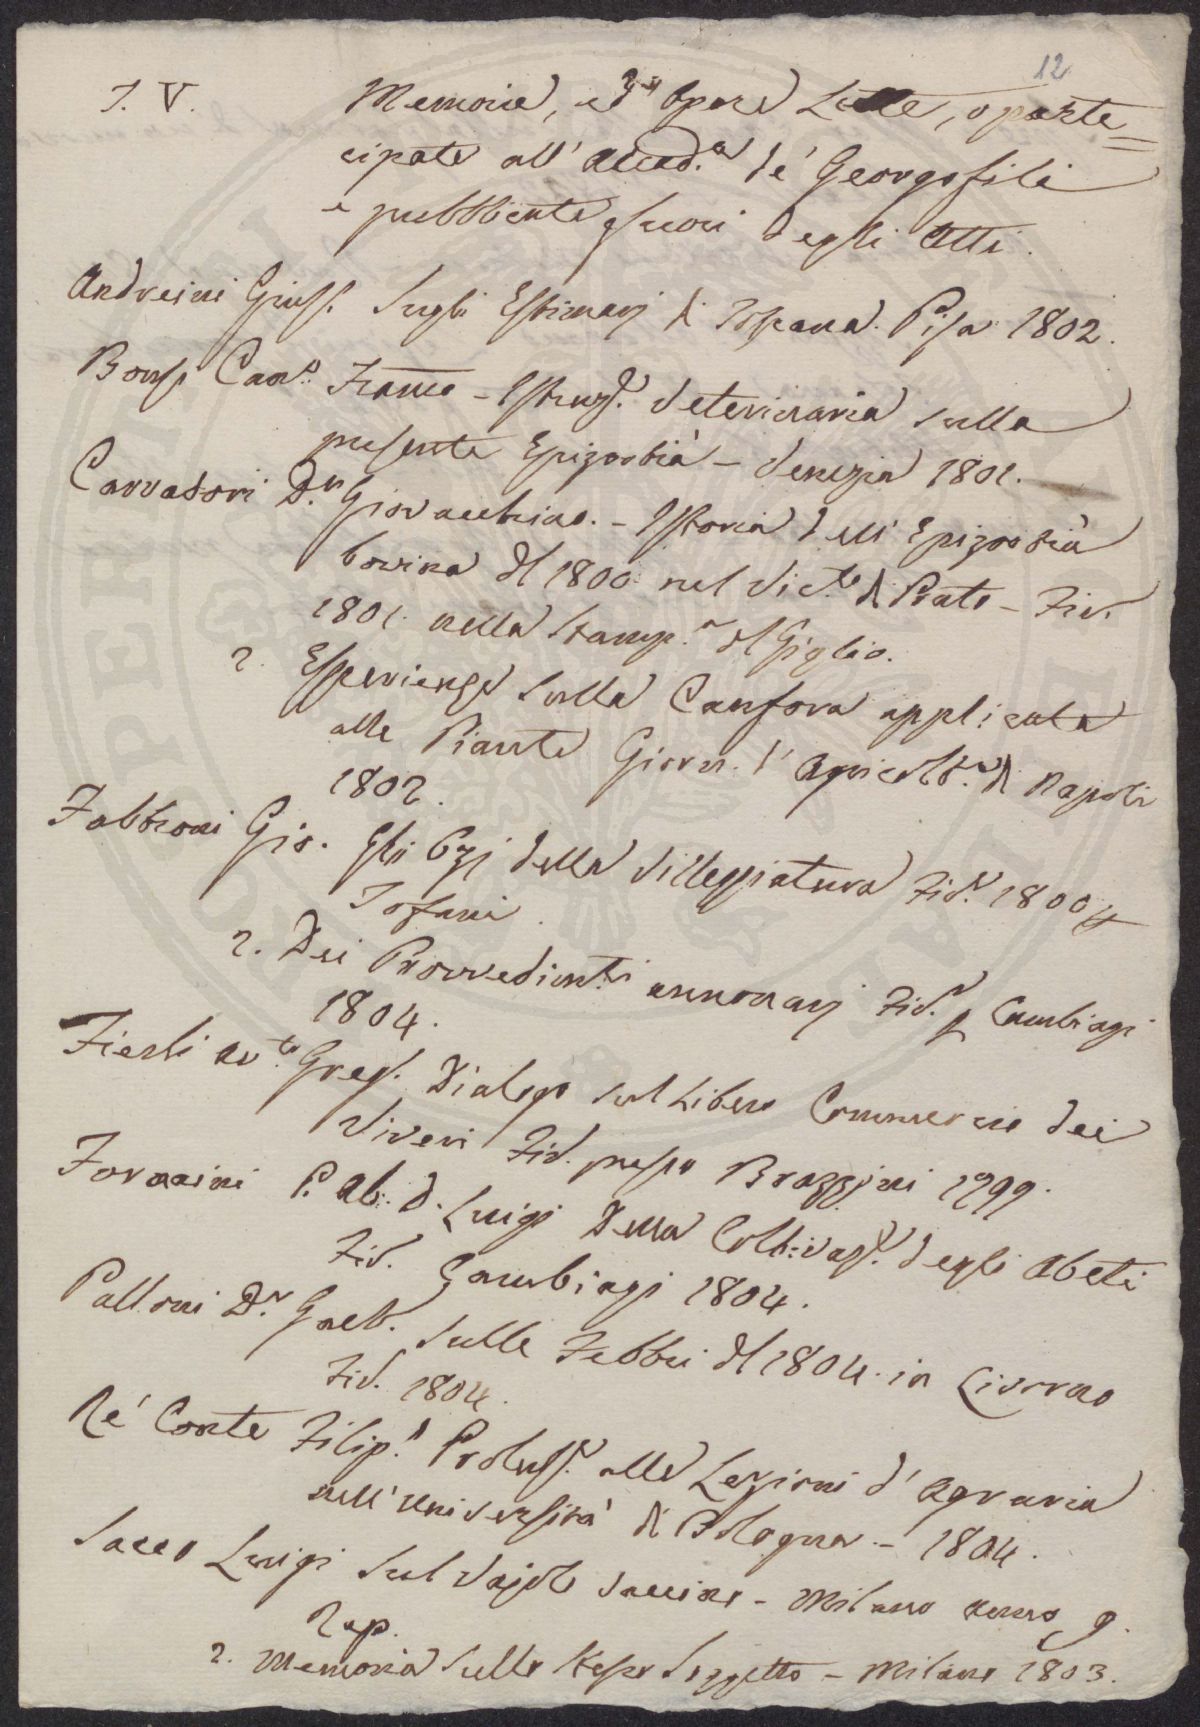 12
T. V. Memorie, ed Opere Lette, o parte=
cipate all' Accad.a de' Georgofili
e pubblicate fuori degli Atti.
Andreini Giuse. Sugli Estimarj di Toscana. Pisa 1802.
Bonsi Can.co Franco - Istruz.e Veterinaria sulla
presente Epizootia - Venezia 1801.
Carradori D.r Giovacchino. - Istoria dell' Epizootia
bovina del 1800 nel Vic.to di Prato - Fir.
1801. nella Stamp.a del Giglio.
2. Esperienze sulla Canfora applicata
alle Piante Giorn. d' Agricolt.a di Napoli
1802.
Fabbroni Gio. Gli Ozj della Villeggiatura Fir.e 1800
Tofani.
2. Dei Provvedim.ti annonarj Fir.e p Cambiagi
1804.
Fierli Av.to Greg. Dialogo sul Libero Commercio dei
Viveri Fir. presso Brazzini 1799.
Fornaini P. Ab. D. Luigi Della Coltivaz.e degli Abeti
Fir. Gambiagi 1804.
Palloni D.r Gaet. sulle Febbri del 1804. in Livorno
Fir. 1804.
Re' Conte Filip.o Prolus.e alle Lezioni d' Agraria
nell' Università di Bologna - 1804.
Sacco Luigi Sul Vajolo vaccino - Milano anno 9.
Rep.
2. Memoria sullo stesso Soggetto - Milano 1803.